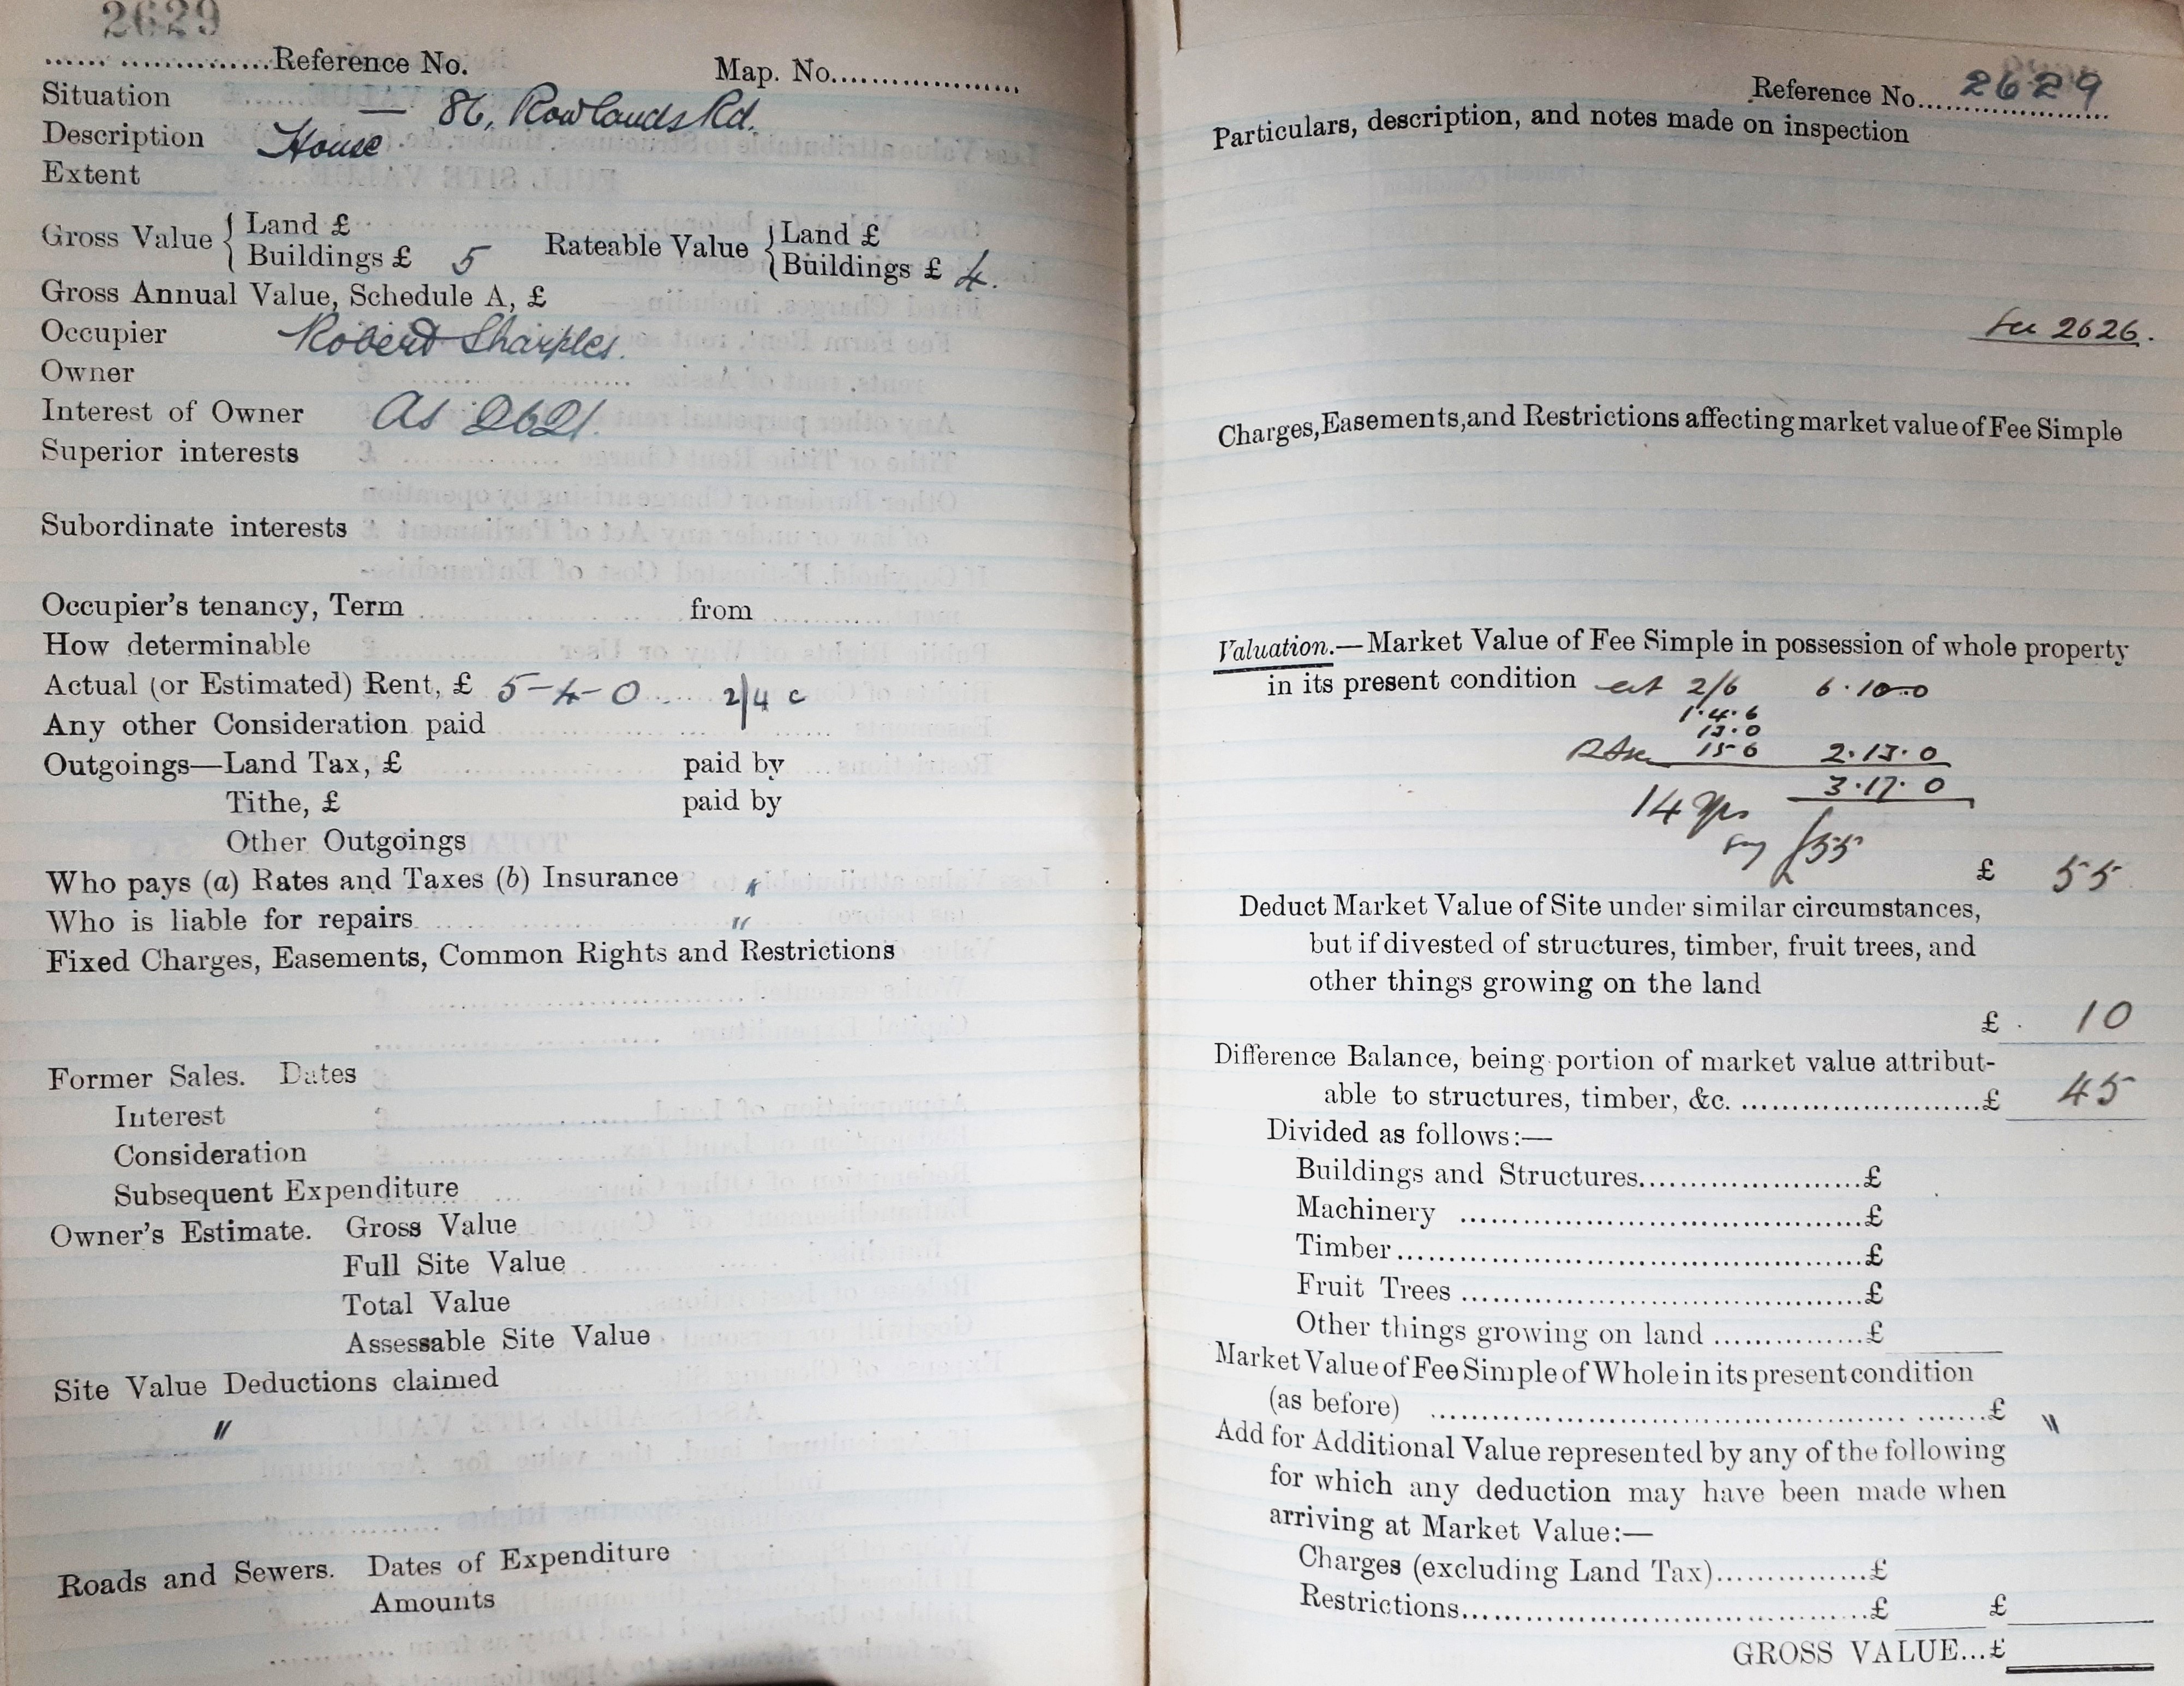 2629
Reference No. Map. No.
Situation — 86, Rowlands Rd.
Description House
Extent
Gross Value { Land £
Buildings £ 5
Rateable Value { Land £
Buildings £ 4.
Gross Annual Value, Schedule A, £
Occupier Robert Sharples.
Owner
Interest of Owner As 2621.
Superior interests
Subordinate interests
Occupier's tenancy, Term from
How determinable
Actual (or Estimated) Rent, £ 5-4-0 2/4 c
Any other Consideration paid
Outgoings—Land Tax, £ paid by
Tithe, £ paid by
Other Outgoings
Who pays (a) Rates and Taxes (b) Insurance "
Who is liable for repairs "
Fixed Charges, Easements, Common Rights and Restrictions
Former Sales. Dates
Interest
Consideration
Subsequent Expenditure
Owner's Estimate. Gross Value
Full Site Value
Total Value
Assessable Site Value
Site Value Deductions claimed
"
Roads and Sewers. Dates of Expenditure
Amounts
Reference No. 2629
Particulars, description, and notes made on inspection
See 2626.
Charges, Easements, and Restrictions affecting market value of Fee Simple
Valuation.—Market Value of Fee Simple in possession of whole property
in its present condition at 2/6 6.10.0
1.4.6
13.0
15.6 2.13.0
3.17.0
14 Yrs
say £55
£ 55
Deduct Market Value of Site under similar circumstances,
but if divested of structures, timber, fruit trees, and
other things growing on the land
£ 10
Difference Balance, being portion of market value attribut-
able to structures, timber, &c. £ 45
Divided as follows:—
Buildings and Structures £
Machinery £
Timber £
Fruit Trees £
Other things growing on land £
Market Value of Fee Simple of Whole in its present condition
(as before) £ "
Add for Additional Value represented by any of the following
for which any deduction may have been made when
arriving at Market Value:—
Charges (excluding Land Tax) £
Restrictions £ £
GROSS VALUE...£